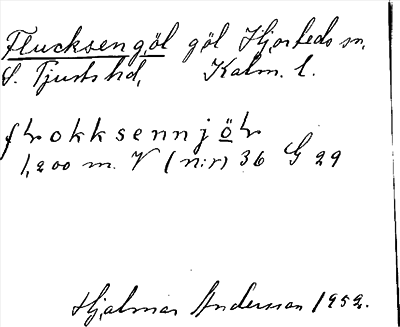 Flucksengöl göl Hjorteds sn,
S. Tjusts hd, Kalm. l.
flokksennjöl
1,200 m. V (n:r) 36 G 29
Hjalmar Andersson 1952.